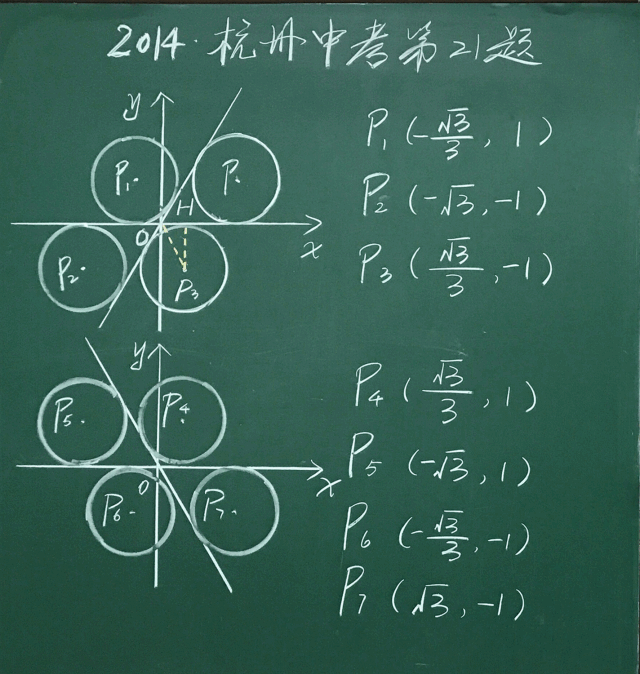 2014·杭州中考第21题
y
P₁
P
H
O
x
P₂
P₃
P₁ (-√3/3, 1)
P₂ (-√3, -1)
P₃ (√3/3, -1)
y
P₅
P₄
O
x
P₆
P₇
P₄ (√3/3, 1)
P₅ (-√3, 1)
P₆ (-√3/3, -1)
P₇ (√3, -1)